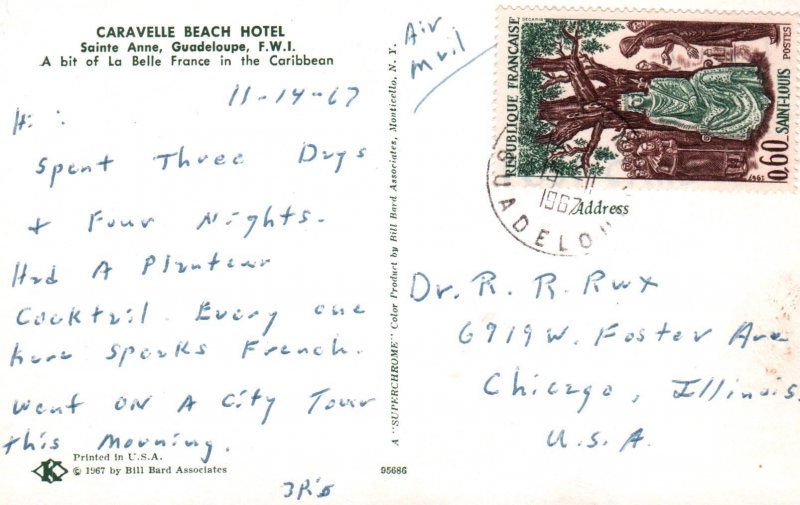 CARAVELLE BEACH HOTEL
Sainte Anne, Guadeloupe, F.W.I.
A bit of La Belle France in the Caribbean
11-14-67
Hi:
Spent Three Days
+ Four Nights.
Had A Planteur
Cocktail. Every one
here speaks French.
Went ON A City Tour
this Morning.
Printed in U.S.A.
© 1967 by Bill Bard Associates
K
3R's
95686
A "SUPERCHROME" Color Product by Bill Bard Associates, Monticello, N. Y.
Air
Mail
RÉPUBLIQUE FRANÇAISE
DECARIS
POSTES
0,60 SAINT-LOUIS
1967
1967
GUADELOU
Address
Dr. R. R. Rux
6919 W. Foster Ave
Chicago, Illinois.
U.S.A.